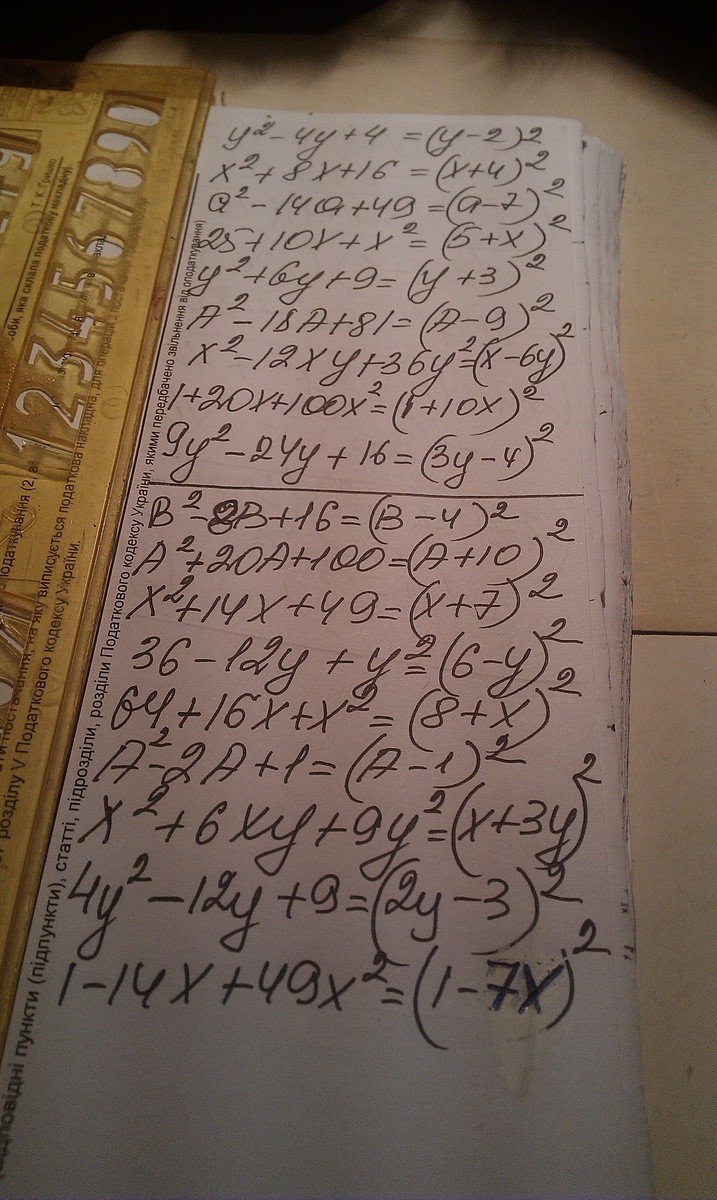 y² - 4y + 4 = (y - 2)2
x² + 8x + 16 = (x + 4)²
a² - 14a + 49 = (a - 7)²
25 + 10x + x² = (5 + x)²
y² + 6y + 9 = (y + 3)²
A² - 18A + 81 = (A - 9)²
x² - 12xy + 36y² = (x - 6y)²
1 + 20x + 100x² = (1 + 10x)²
9y² - 24y + 16 = (3y - 4)²
B² - 8B + 16 = (B - 4)²
A² + 20A + 100 = (A + 10)²
x² + 14x + 49 = (x + 7)²
36 - 12y + y² = (6 - y)²
64 + 16x + x² = (8 + x)²
A² - 2A + 1 = (A - 1)²
x² + 6xy + 9y² = (x + 3y)²
4y² - 12y + 9 = (2y - 3)²
1 - 14x + 49x² = (1 - 7x)²
1234567890
(підпункти), статті, підрозділи, розділи Податкового кодексу України, якими передбачено звільнення від оподаткування)
розділу V Податкового кодексу України.
на яку виписується податкова накладна, для операцій
оби, яка склала податкову накладну)
Т. К. Гришко